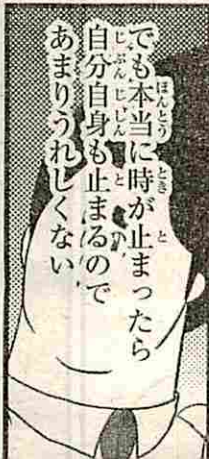 でも本当に時が止まったら
自分自身も止まるので
あまりうれしくない